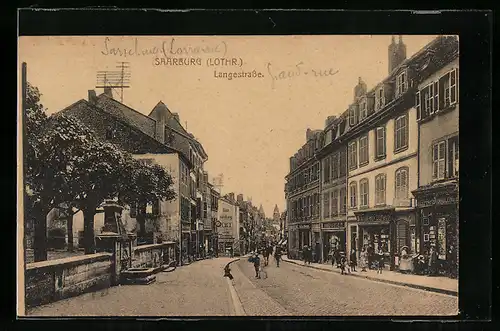 Sarrebourg (Lorraine)
SAARBURG (LOTHR.)
Langestraße.
Grand-rue